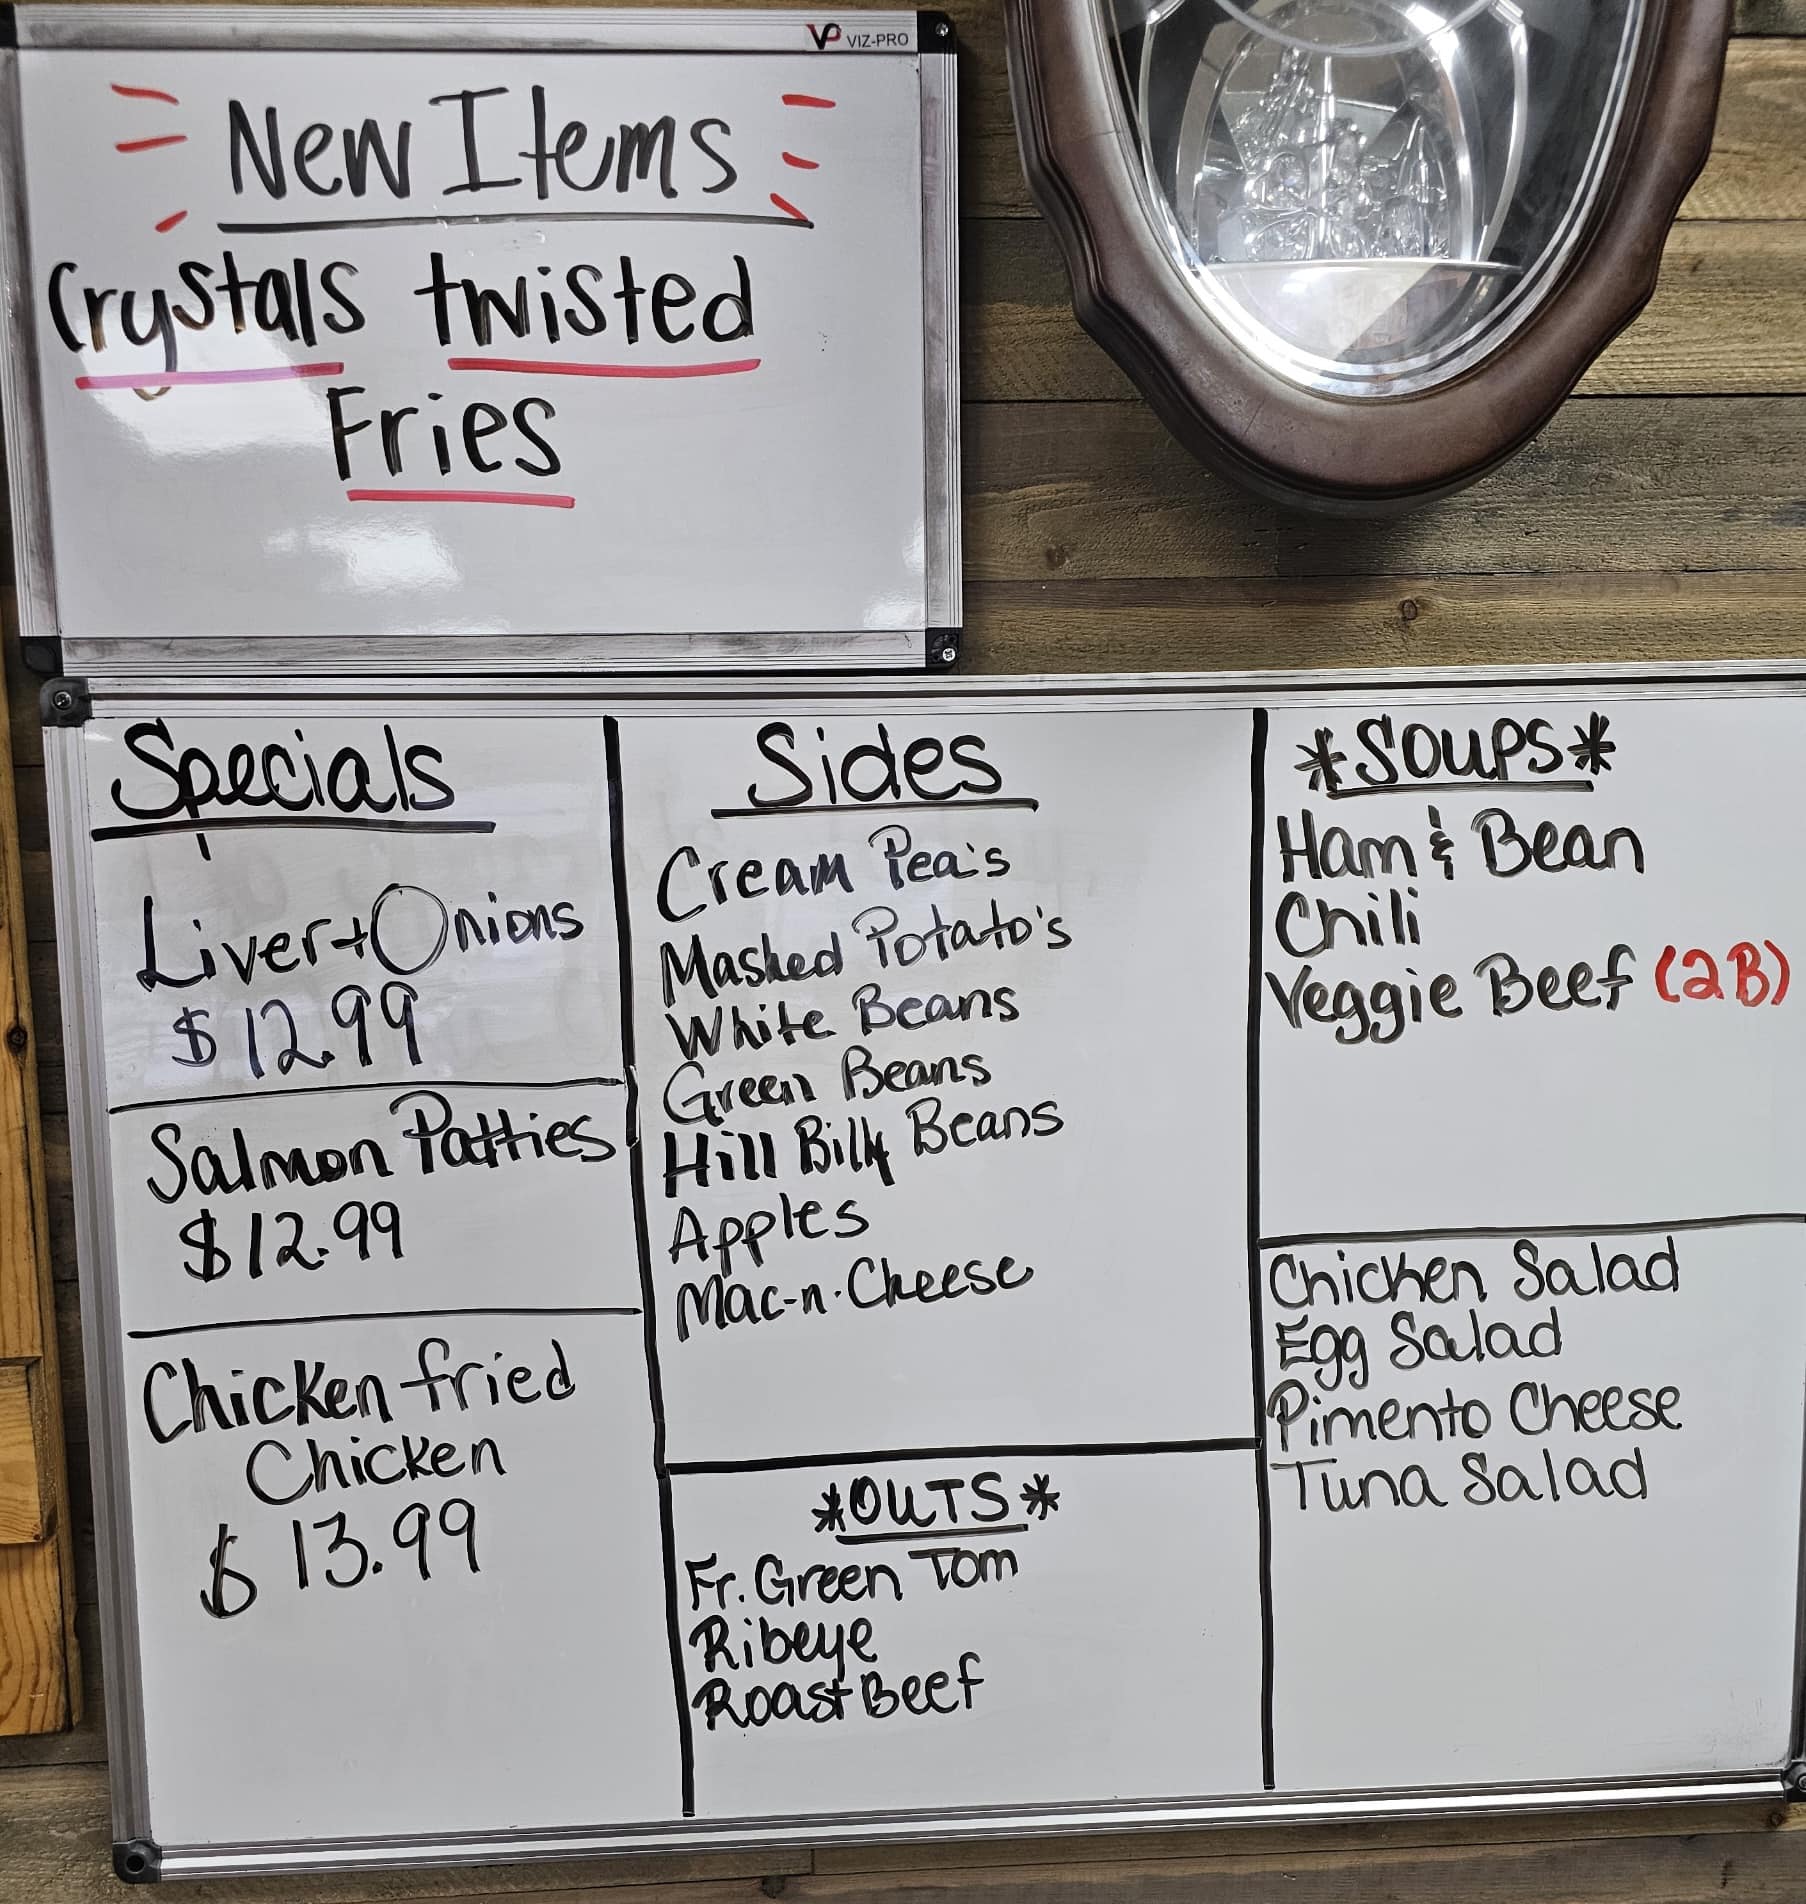 VP VIZ-PRO
New Items
Crystals twisted
Fries
Specials
Liver + Onions
$12.99
Salmon Patties
$12.99
Chicken fried
Chicken
$13.99
Sides
Cream Pea's
Mashed Potato's
White Beans
Green Beans
Hill Billy Beans
Apples
Mac-n-Cheese
*OUTS*
Fr. Green Tom
Ribeye
Roast Beef
*SOUPS*
Ham & Bean
Chili
Veggie Beef (2B)
Chicken Salad
Egg Salad
Pimento Cheese
Tuna Salad